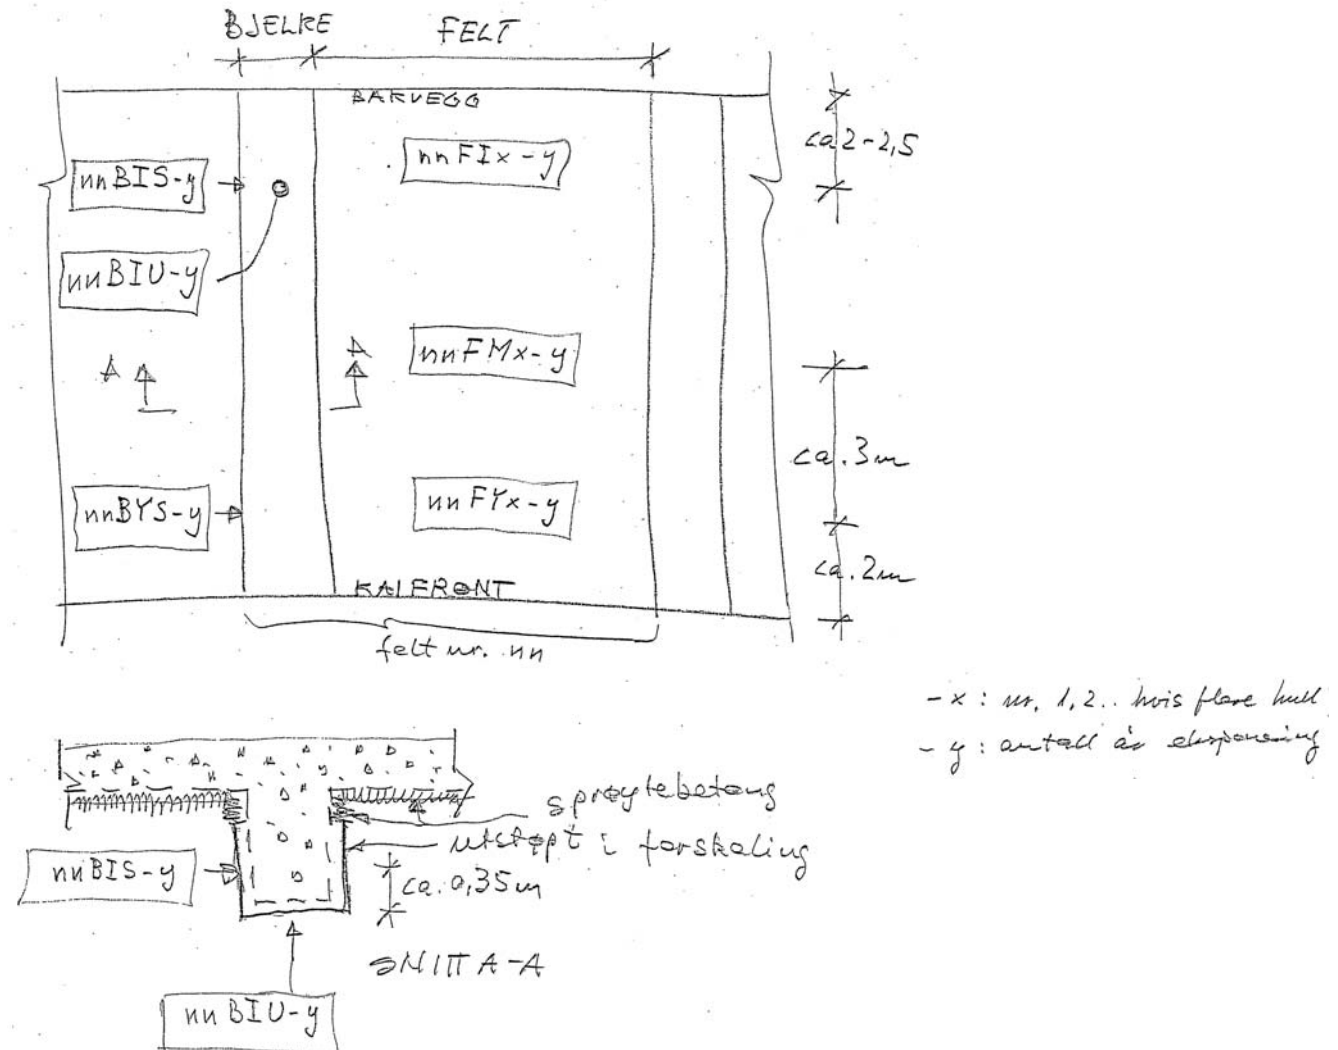 BJELKE FELT
BAKVEGG
nnFIx-y
ca 2-2,5
nnBIS-y
nnBIU-y
A A
nnFMx-y
ca. 3m
nnBYS-y
nnFYx-y
ca. 2m
KAIFRONT
felt nr. nn
- x : nr. 1,2.. hvis flere hull
- y : antall år eksponering
sprøytebetong
utstøpt i forskaling
nnBIS-y
ca. 0,35m
SNITT A-A
nnBIU-y